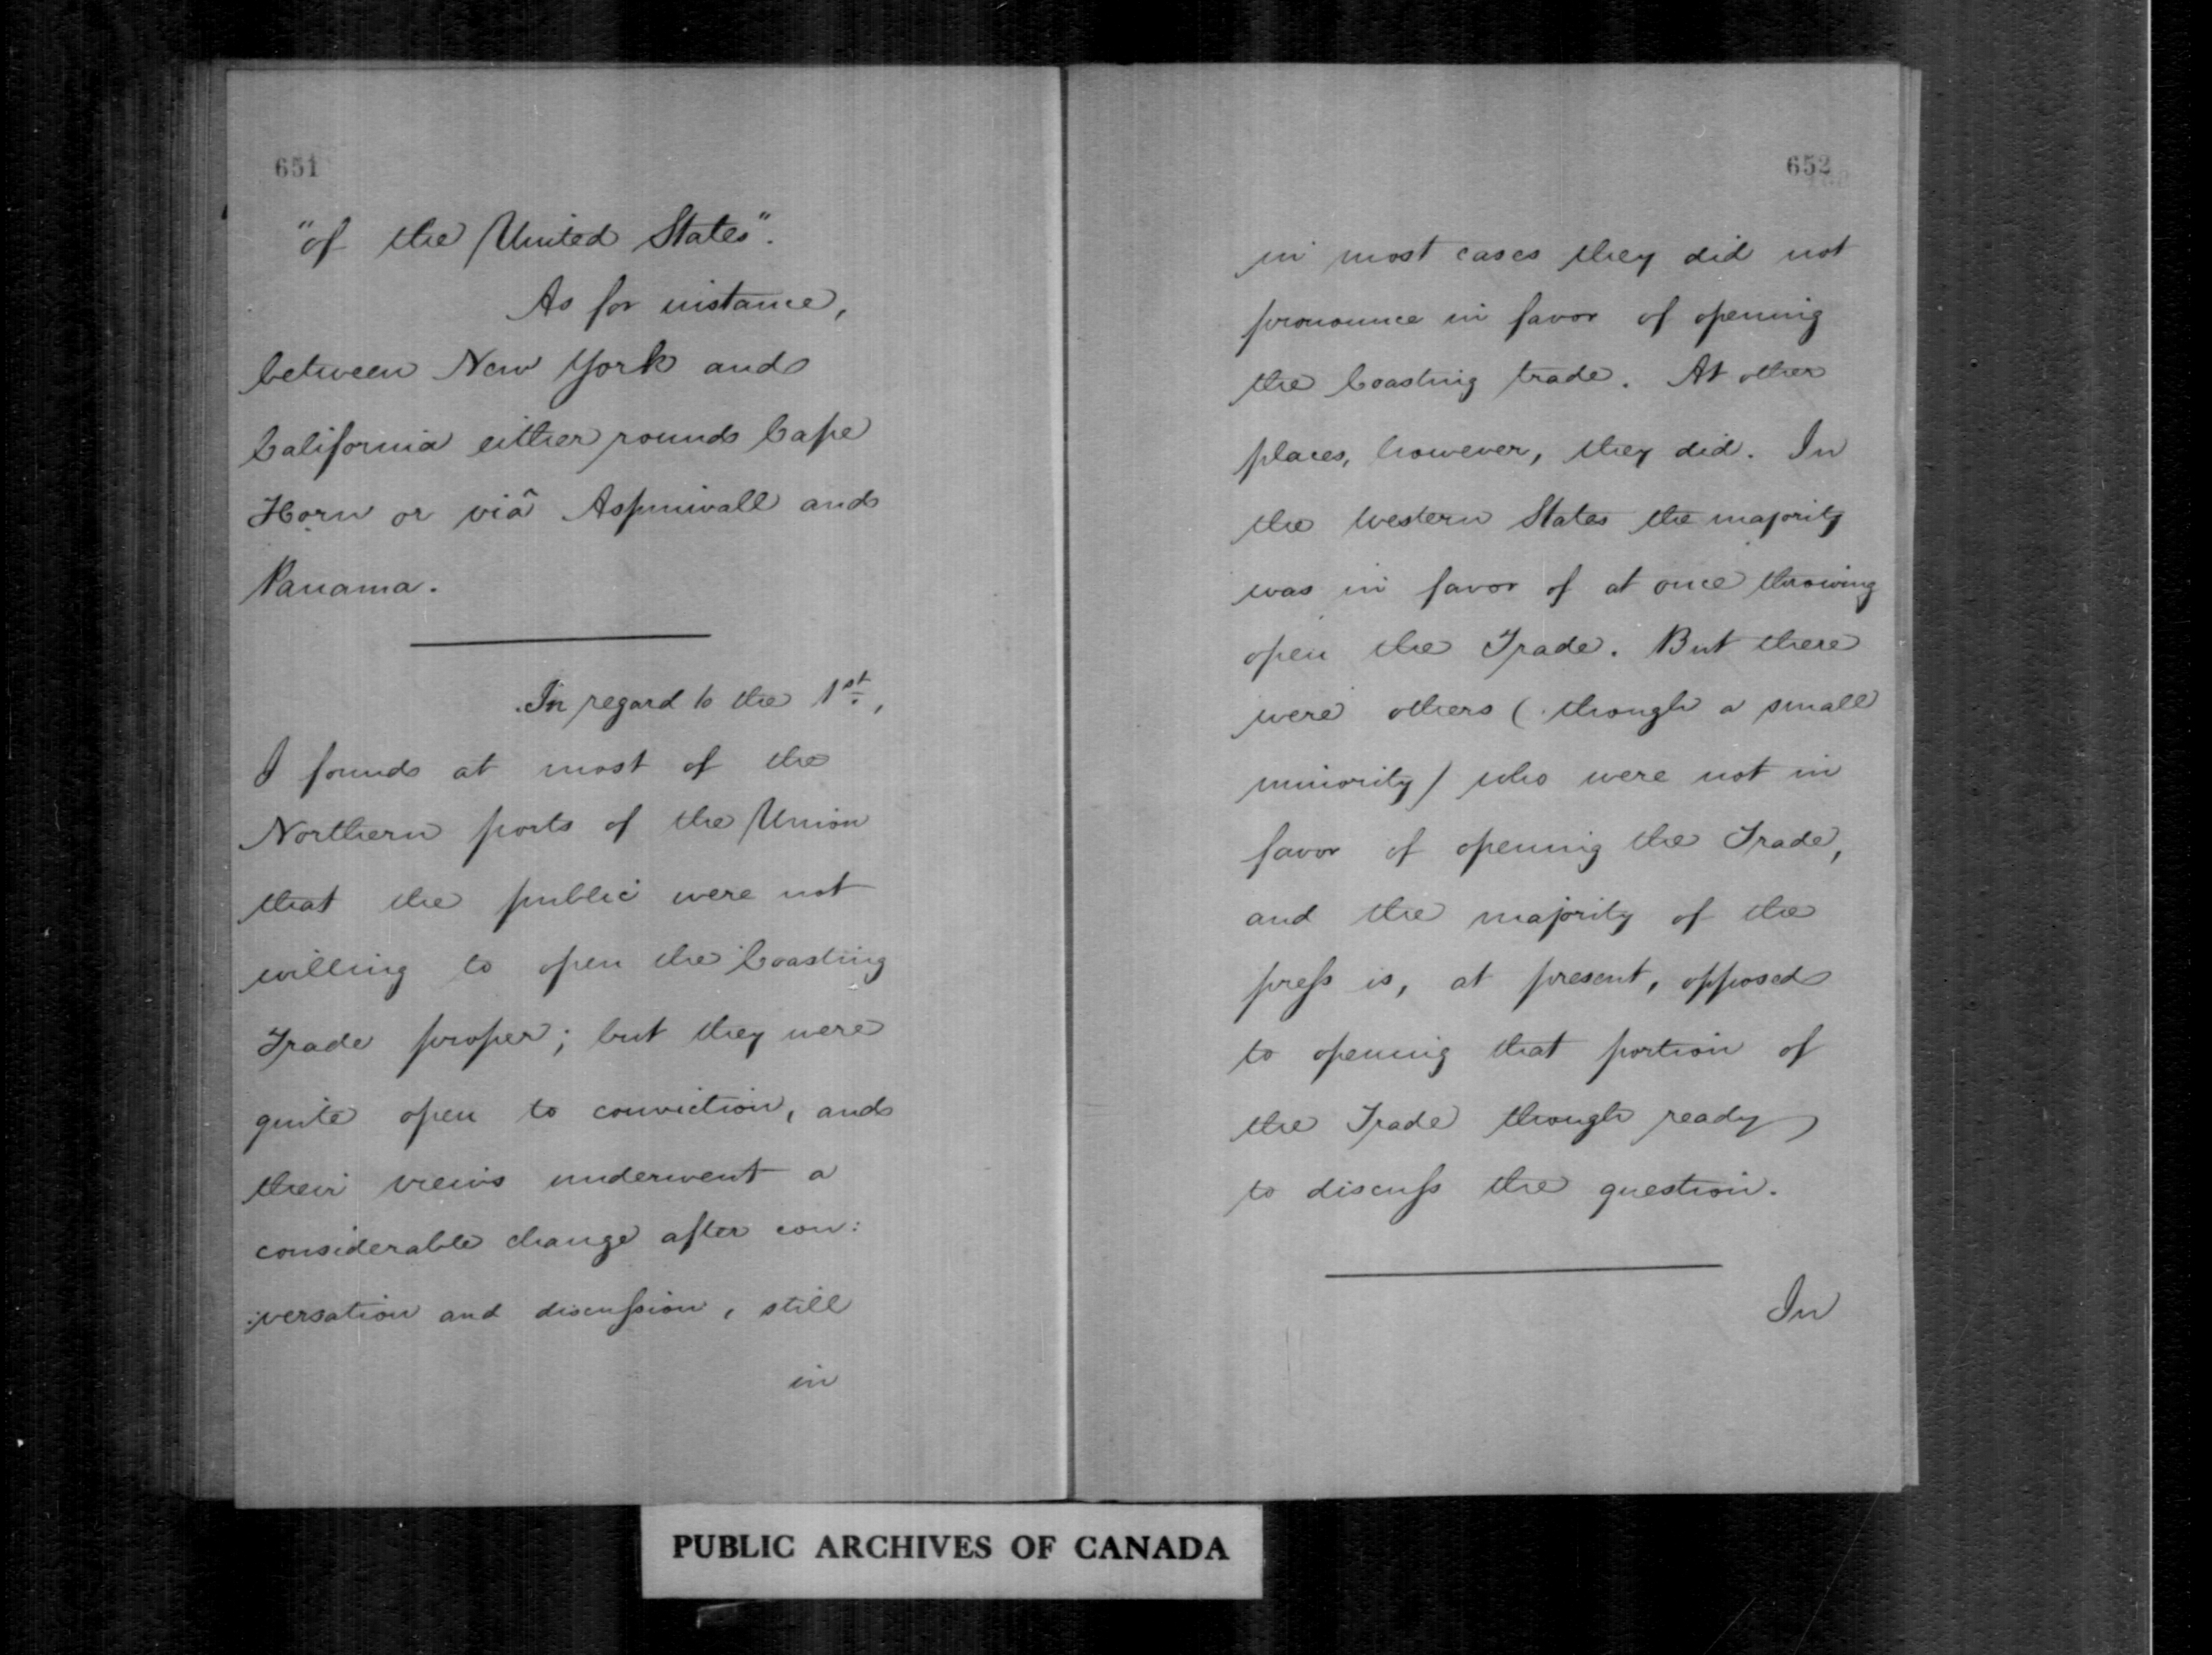 651
"of the United States".
As for instance,
between New York and
California either round Cape
Horn or viâ Aspinwall and
Panama.
In regard to the 1st,
I found at most of the
Northern ports of the Union
that the public were not
willing to open the Coasting
Trade proper; but they were
quite open to conviction, and
their views underwent a
considerable change after con:
:versation and discussion, still
in
652
in most cases they did not
pronounce in favor of opening
the Coasting trade. At other
places, however, they did. In
the Western States the majority
was in favor of at once throwing
open the Trade. But there
were others (though a small
minority) who were not in
favor of opening the Trade,
and the majority of the
press is, at present, opposed
to opening that portion of
the Trade though ready
to discuss the question.
In
PUBLIC ARCHIVES OF CANADA